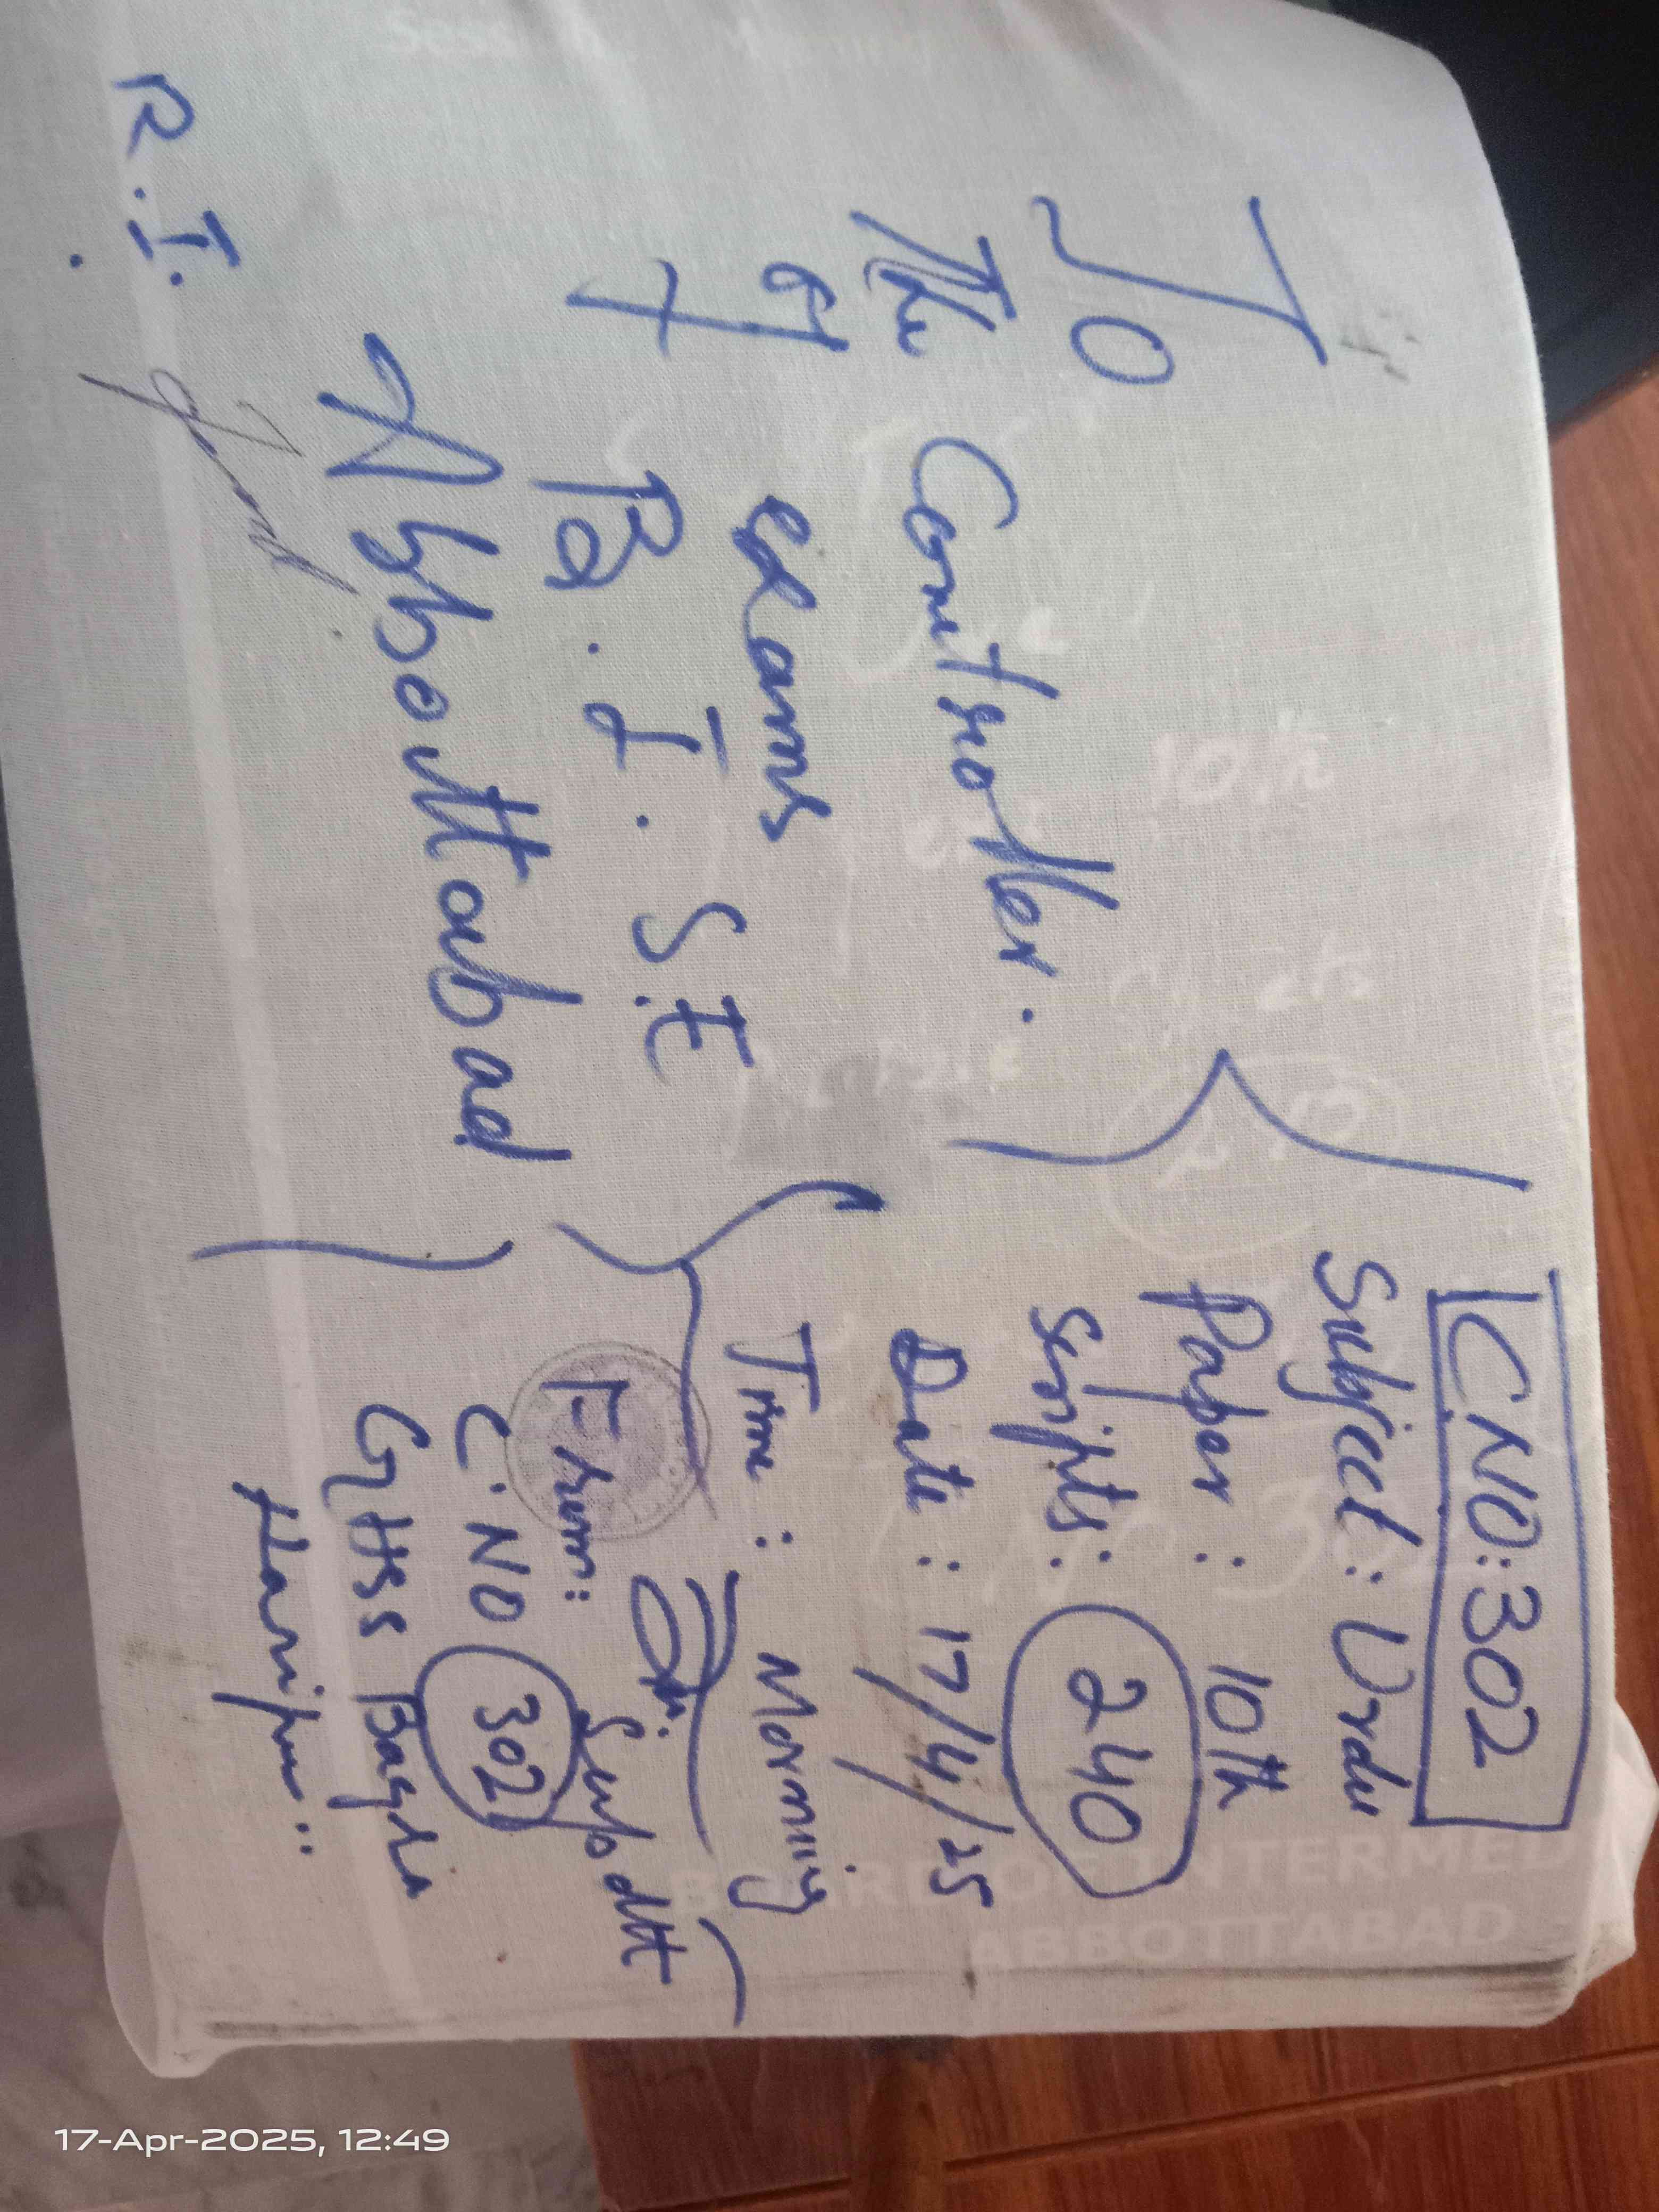 To
The Controller.
of exams
B.I.S.E
Abbouttabad
R.I.
C NO: 302
Subject: Urdu
Paper: 10th
Scripts: 240
Date: 17/4/25
Time: Morning
Supdtt
From:
C.NO 302
GHSS Bagra
Haripur..
BOARD OF INTERMED
ABBOTTABAD
10th
17-Apr-2025, 12:49